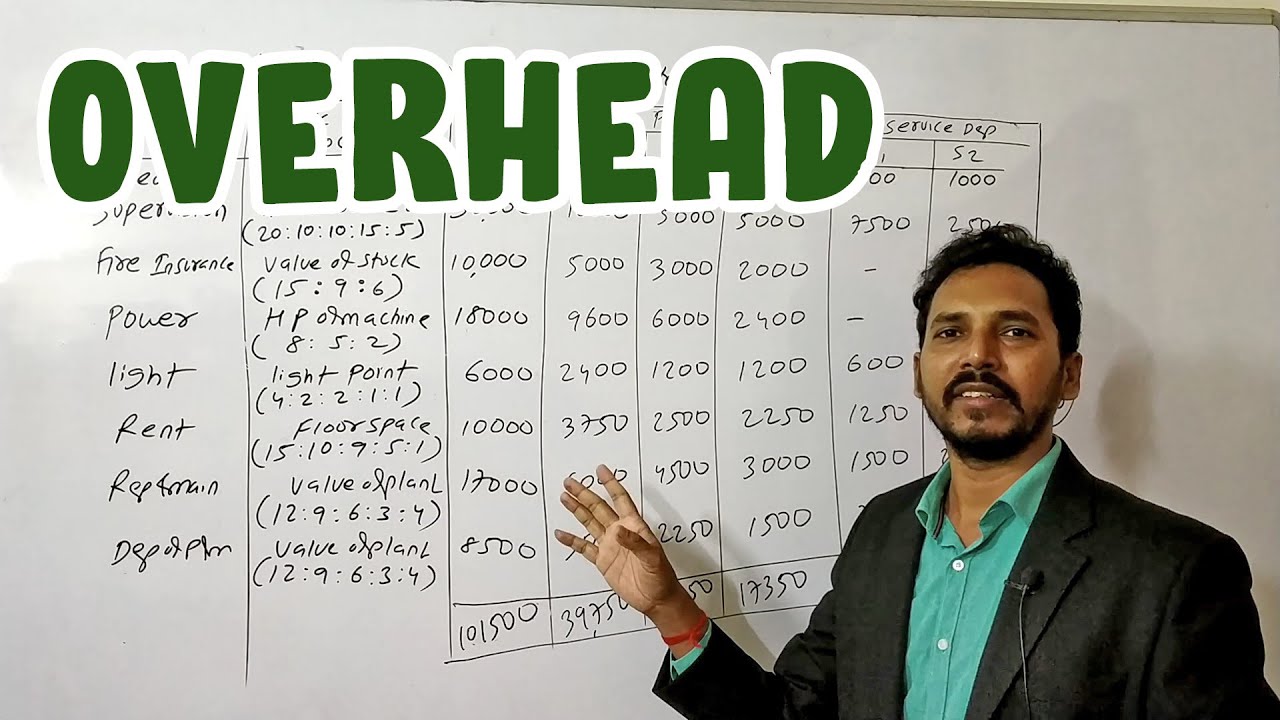 OVERHEAD
Service Dep
S2
1000
Supervision 5000 5000 7500
(20:10:10:15:5)
Fire Insurance value of stock 10,000 5000 3000 2000 -
(15:9:6)
Power HP of machine 18000 9600 6000 2400 -
(8:5:2)
light light point 6000 2400 1200 1200 600
(4:2:2:1:1)
Rent Floor space 10000 3750 2500 2250 1250
(15:10:9:5:1)
Rep&main value of plant 17000 6000 4500 3000 1500
(12:9:6:3:4)
Dep of Plan value of plant 8500 2250 1500
(12:9:6:3:4)
101500 39,750 17350